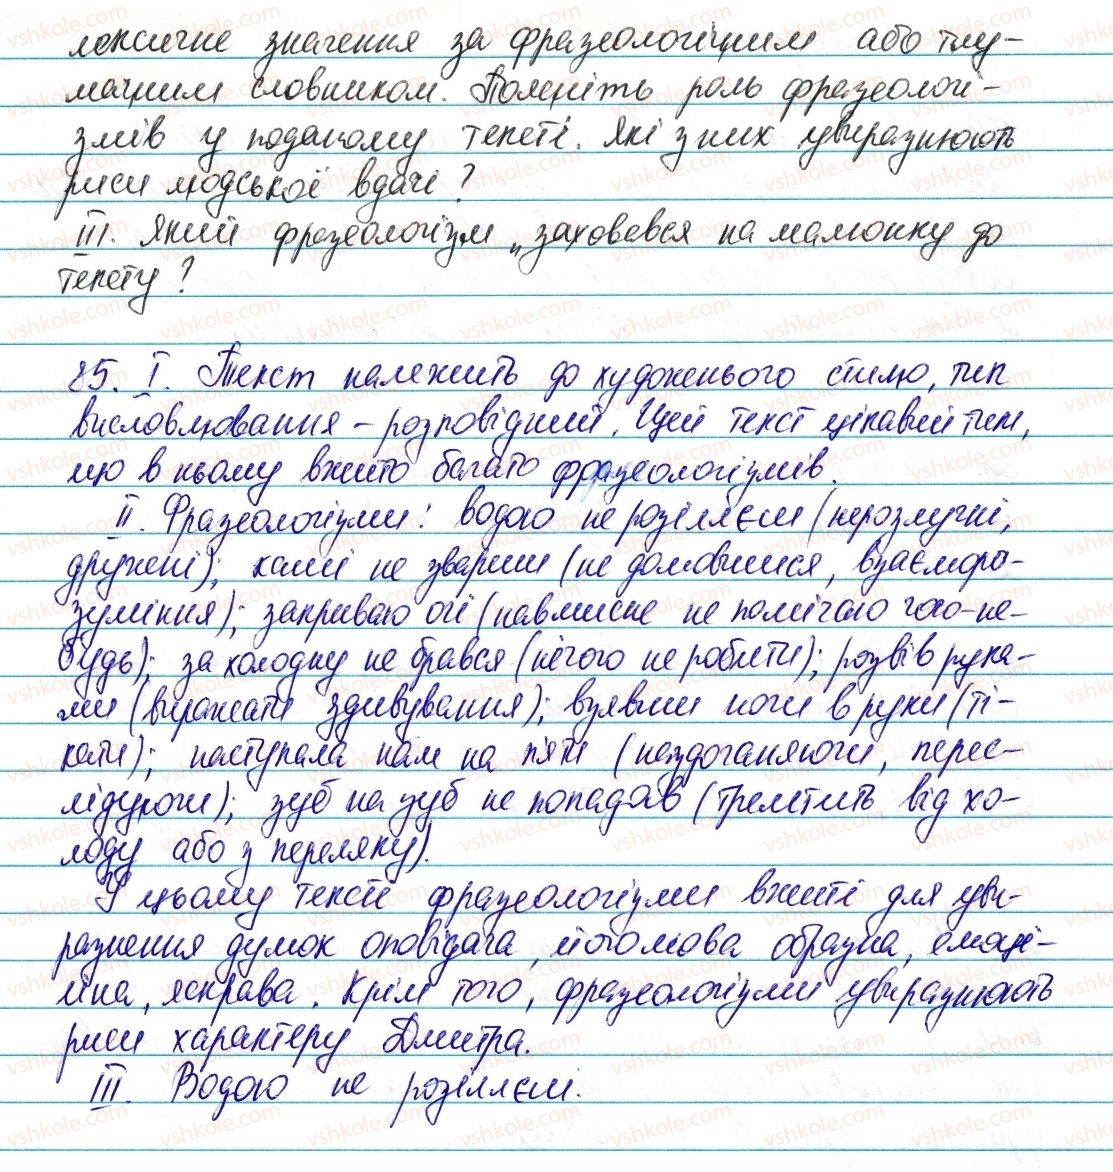 лексичне значення за фразеологічним або тлу-
мачним словником. Поясніть роль фразеологі-
змів у поданому тексті. Які з них увиразнюють
риси людської вдачі?
III. Який фразеологізм „заховався на малюнку до
тексту?
85. I. Текст належить до художнього стилю, тип
висловлювання - розповідний. Цей текст цікавий тим,
що в ньому вжито багато фразеологізмів.
II. Фразеологізми: водою не розіллєш (нерозлучні,
дружені); каші не звариш (не домовишся, взаєморо-
зуміння); закриваю очі (навмисне не помічаю чого-не-
будь); за холодну не брався (нічого не робити); розвів рука-
ми (виражати здивування); взявши ноги в руки (ті-
кати); наступала нам на п'яти (наздоганяючи, перес-
лідуючи); зуб на зуб не попадав (тремтить від хо-
лоду або з переляку).
У цьому тексті фразеологізми вжиті для уви-
разнення думок оповідача, його мова образна, емоці-
йна, яскрава. Крім того, фразеологізми увиразнюють
риси характеру Дмитра.
III. Водою не розіллєш.